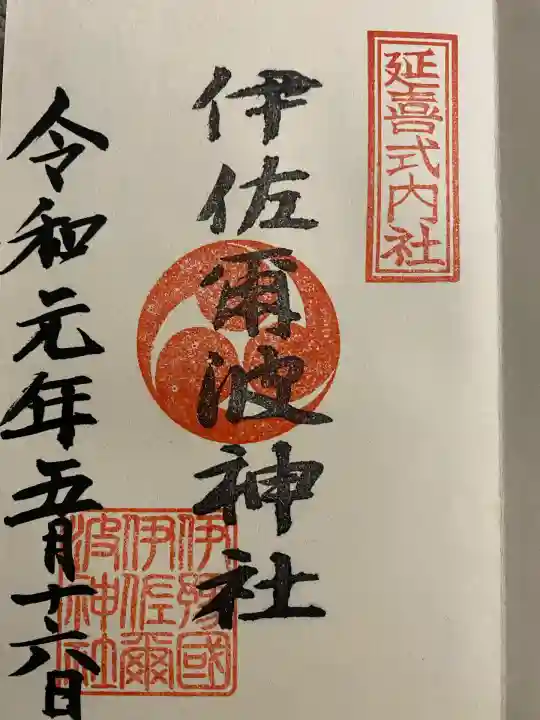 延喜式内社
伊佐爾波神社
伊豫國
伊佐爾
波神社
令和元年五月十六日